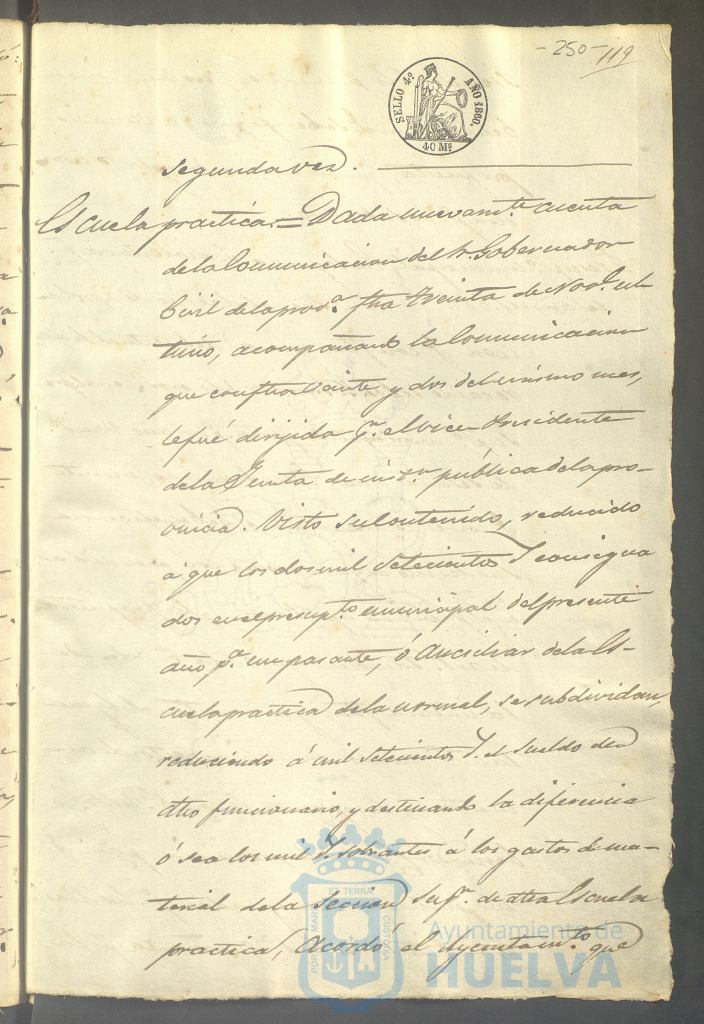 -250- 119
SELLO 4º AÑO 1860.
40 Ms
segunda vez.
Escuela practica = Dada nuevamte cuenta
de la Comunicacion del Sr. Gobernador
Civil de la prova. fha treinta de Nove. ul-
timo, acompañando la Comunicacion
que con fha veinte y dos del mismo mes,
le fué dirijida pr. el vice Presidente
de la Junta de insn. pública de la pro-
vincia. Visto su contenido, reducido
á que los dos mil setecientos rs consigna
dos en el presupto. municipal del presente
año pa. un pasante, ó Auxiliar de la Es-
cuela practica de la normal, se subdividan,
reduciendo á mil setecientos rs. el sueldo de
dho funcionario, y destinando la diferencia
ó sea los mil rs. sobrantes á los gastos de ma-
terial de la seccion supr. de dha Escuela
practica, Acordó el Ayuntamto. que
PORTUS MARIS ET TERRAE CUSTODIA
Ayuntamiento de
HUELVA